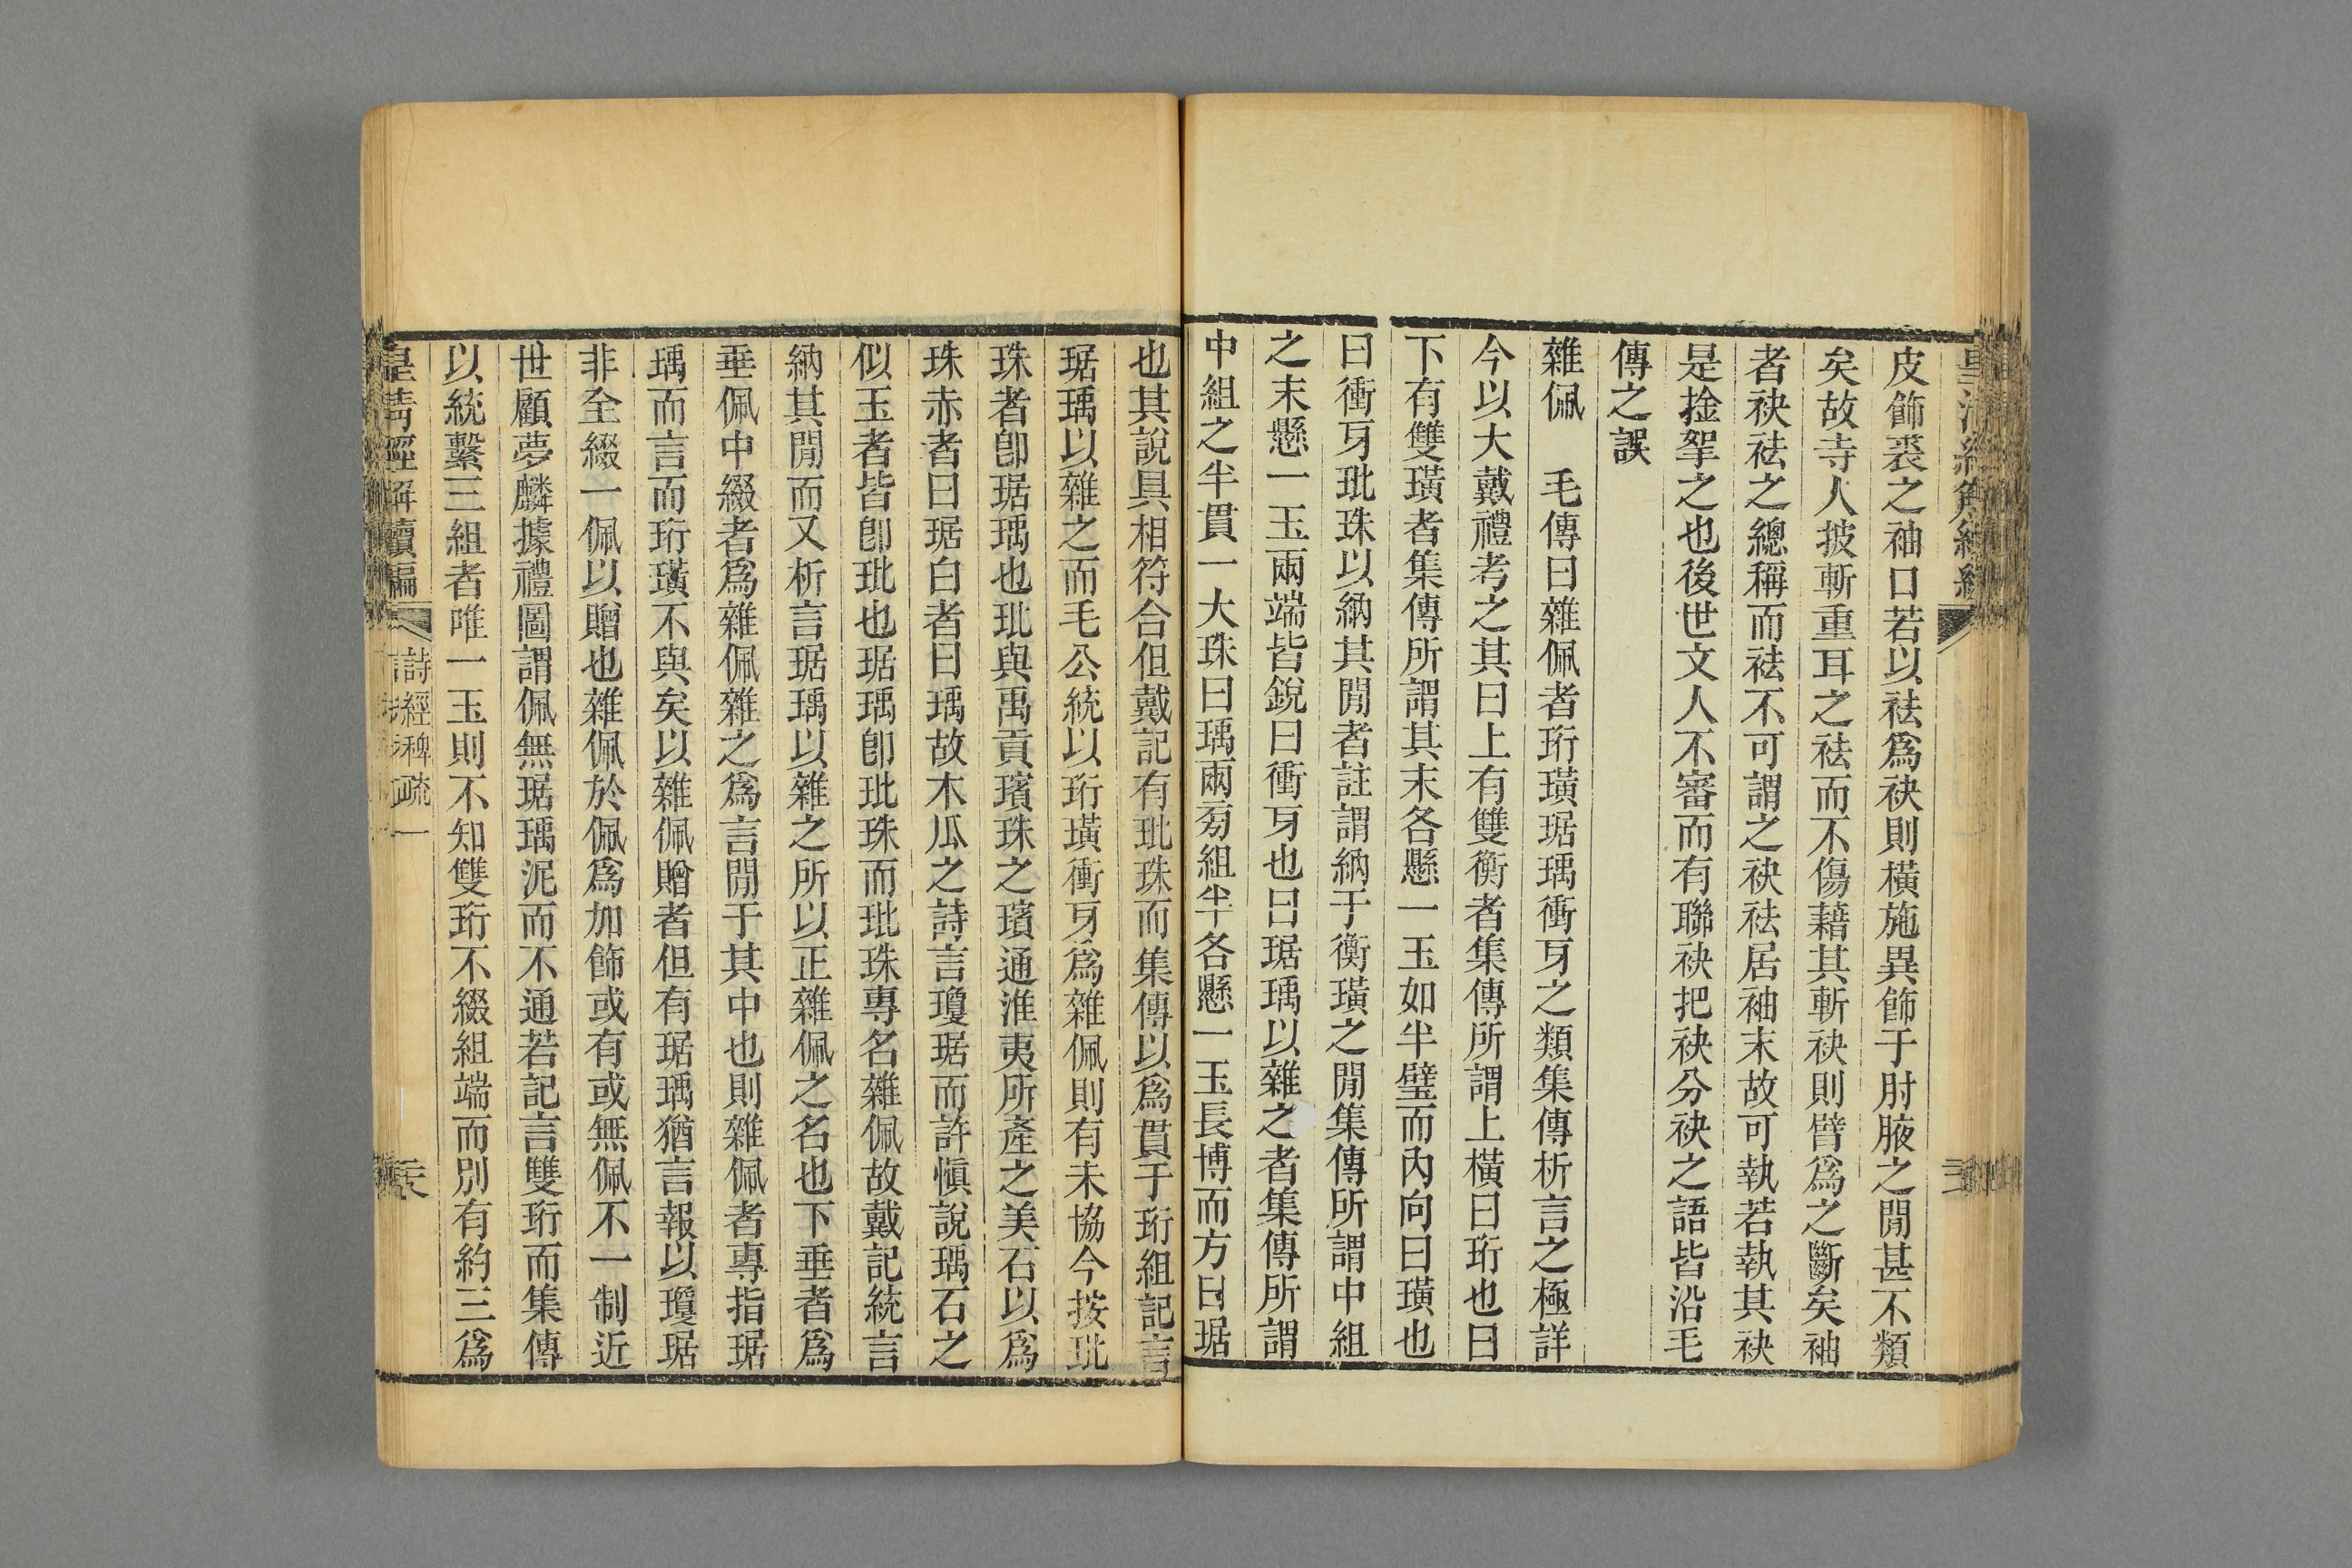 皮飾裘之袖口若以祛爲袂則橫施異飾于肘腋之閒甚不類
矣故寺人披斬重耳之祛而不傷藉其斬袂則臂爲之斷矣袖
者袂祛之總稱而祛不可謂之袂祛居袖末故可執若執其袂
是捡挐之也後世文人不審而有聯袂把袂分袂之語皆沿毛
傳之誤
雜佩　毛傳曰雜佩者珩璜琚瑀衝牙之類集傳析言之極詳
今以大戴禮考之其曰上有雙衡者集傳所謂上橫曰珩也曰
下有雙璜者集傳所謂其末各懸一玉如半璧而內向曰璜也
曰衝牙玭珠以納其閒者註謂納于衡璜之閒集傳所謂中組
之末懸一玉兩端皆銳曰衝牙也曰琚瑀以雜之者集傳所謂
中組之半貫一大珠曰瑀兩旁組半各懸一玉長博而方曰琚
也其說具相符合但戴記有玭珠而集傳以爲貫于珩組記言
琚瑀以雜之而毛公統以珩璜衝牙爲雜佩則有未協今按玭
珠者卽琚瑀也玭與禹貢璸珠之璸通淮夷所產之美石以爲
珠赤者曰琚白者曰瑀故木瓜之詩言瓊琚而許愼說瑀石之
似玉者皆卽玭也琚瑀卽玭珠而玭珠專名雜佩故戴記統言
納其閒而又析言琚瑀以雜之所以正雜佩之名也下垂者爲
垂佩中綴者爲雜佩雜之爲言閒于其中也則雜佩者專指琚
瑀而言而珩璜不與矣以雜佩贈者但有琚瑀猶言報以瓊琚
非全綴一佩以贈也雜佩於佩爲加飾或有或無佩不一制近
世顧夢麟據禮圖謂佩無琚瑀泥而不通若記言雙珩而集傳
以統繫三組者唯一玉則不知雙珩不綴組端而別有約三爲
皇淸經解續編　詩經稗疏一